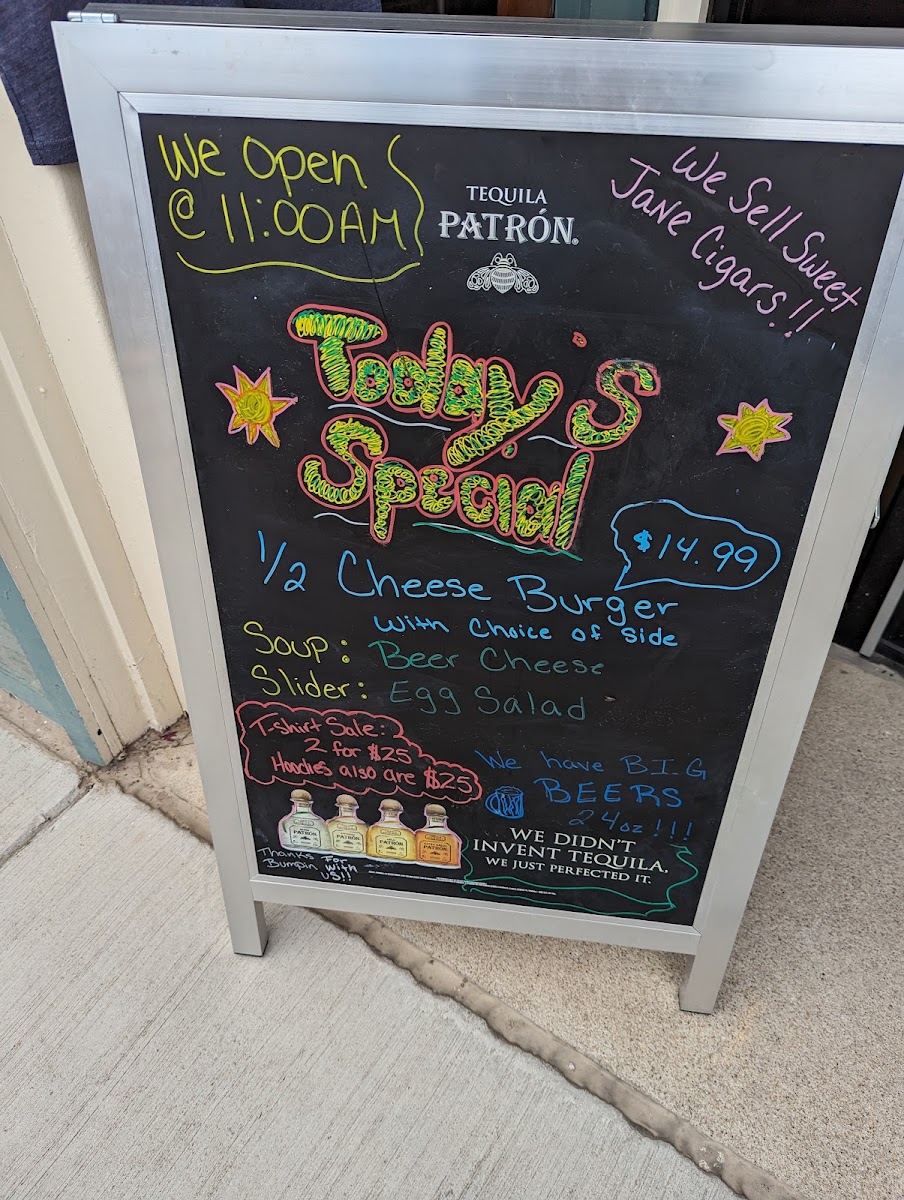 We Open
@ 11:00AM
TEQUILA
PATRÓN.
We Sell Sweet
Jane Cigars!!
Today's
Special
$14.99
1/2 Cheese Burger
With Choice of Side
Soup: Beer Cheese
Slider: Egg Salad
T-Shirt Sale:
2 for $25
Hoodies also are $25
We have B.I.G
BEERS
24oz!!!
PATRÓN
PATRÓN
PATRÓN
PATRÓN
Thanks For
Bumpin With
US!!
WE DIDN'T
INVENT TEQUILA,
WE JUST PERFECTED IT.